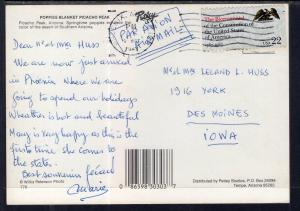 POPPIES BLANKET PICACHO PEAK
Picacho Peak, Arizona. Springtime poppies add
color of the desert of Southern Arizona.
Petley
PAR AVION
AIR MAIL
The Bicentennial
of the Constitution of
the United States
of America
USA 22
Dear Mr & Mrs Huss
We are now just arrived
in Phoenix where we are
going to spend our holidays
Weather is hot and beautiful
Mary is very happy as this is the
first time she comes to
the states.
Best souvenirs
Mr & Mrs LELAND L. HUSS
1916 YORK
DES MOINES
IOWA
© Willis Peterson Photo
0 86598 30303 7
Distributed by Petley Studios, P.O. Box
Tempe, Arizona 85283